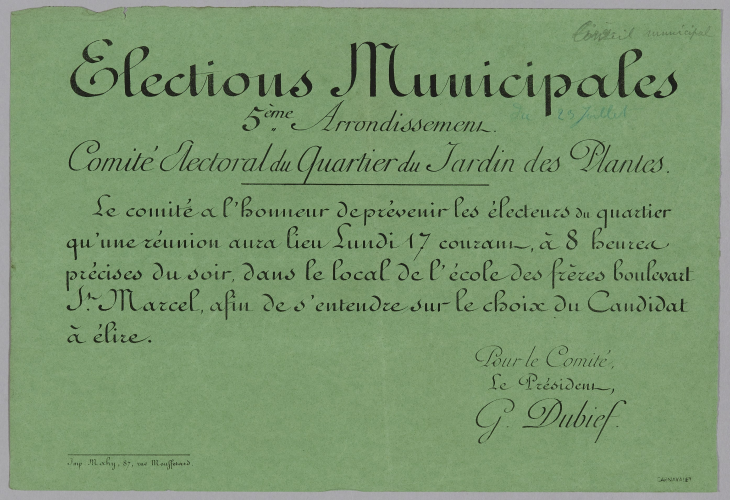 Conseil municipal
Elections Municipales
du 25 Juillet
5ème Arrondissement.
Comité Electoral du Quartier du Jardin des Plantes.
Le comité a l'honneur de prévenir les électeurs du quartier
qu'une réunion aura lieu Lundi 17 courant, à 8 heures
précises du soir, dans le local de l'école des frères boulevart
St. Marcel, afin de s'entendre sur le choix du Candidat
à élire.
Pour le Comité,
Le Président,
G. Dubief.
Imp. Mochy, 87, rue Mouffetard.